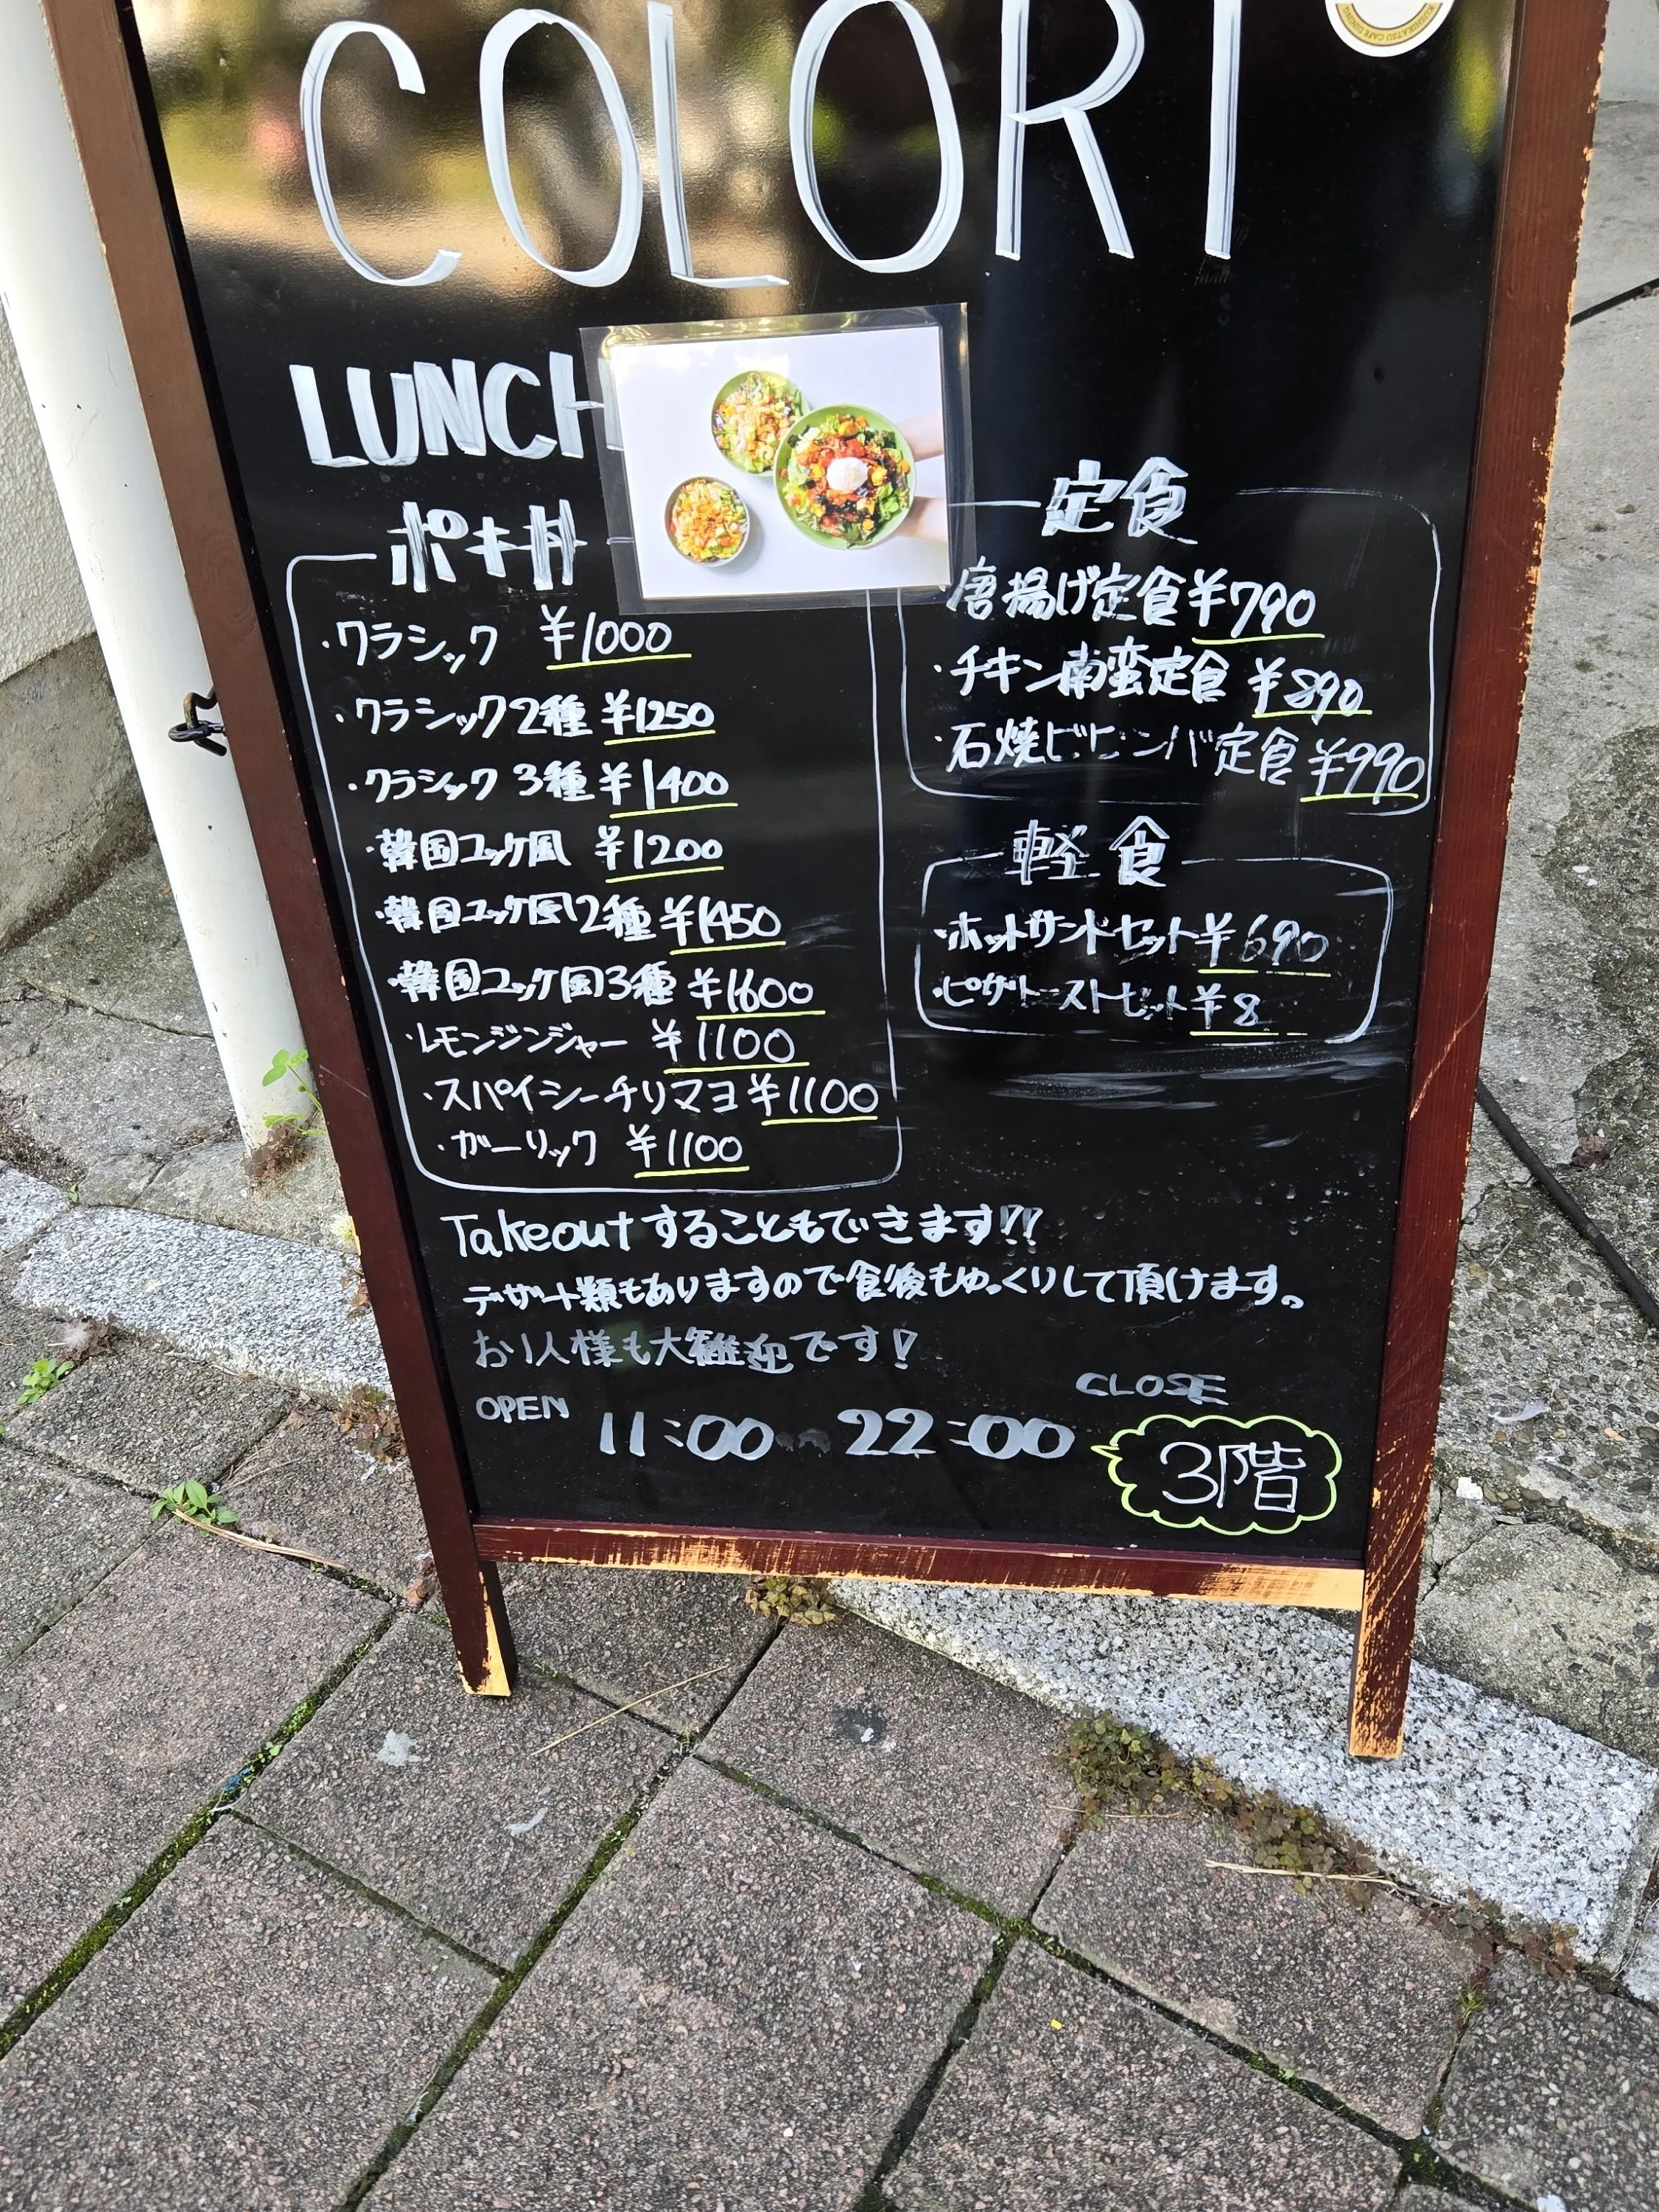 COLORI
LUNCH
ポキ丼
・クラシック ¥1000
・クラシック2種 ¥1250
・クラシック 3種 ¥1400
・韓国ユッケ風 ¥1200
・韓国ユッケ風2種 ¥1450
・韓国ユッケ風3種 ¥1600
・レモンジンジャー ¥1100
・スパイシーチリマヨ ¥1100
・ガーリック ¥1100
定食
唐揚げ定食 ¥790
・チキン南蛮定食 ¥890
・石焼ビビンバ定食 ¥990
軽食
・ホットサンドセット ¥690
・ピザトーストセット ¥8
Takeoutすることもできます!!
デザート類もありますので食後もゆっくりして頂けます。
お1人様も大歓迎です!
OPEN 11:00 22:00 CLOSE
3階